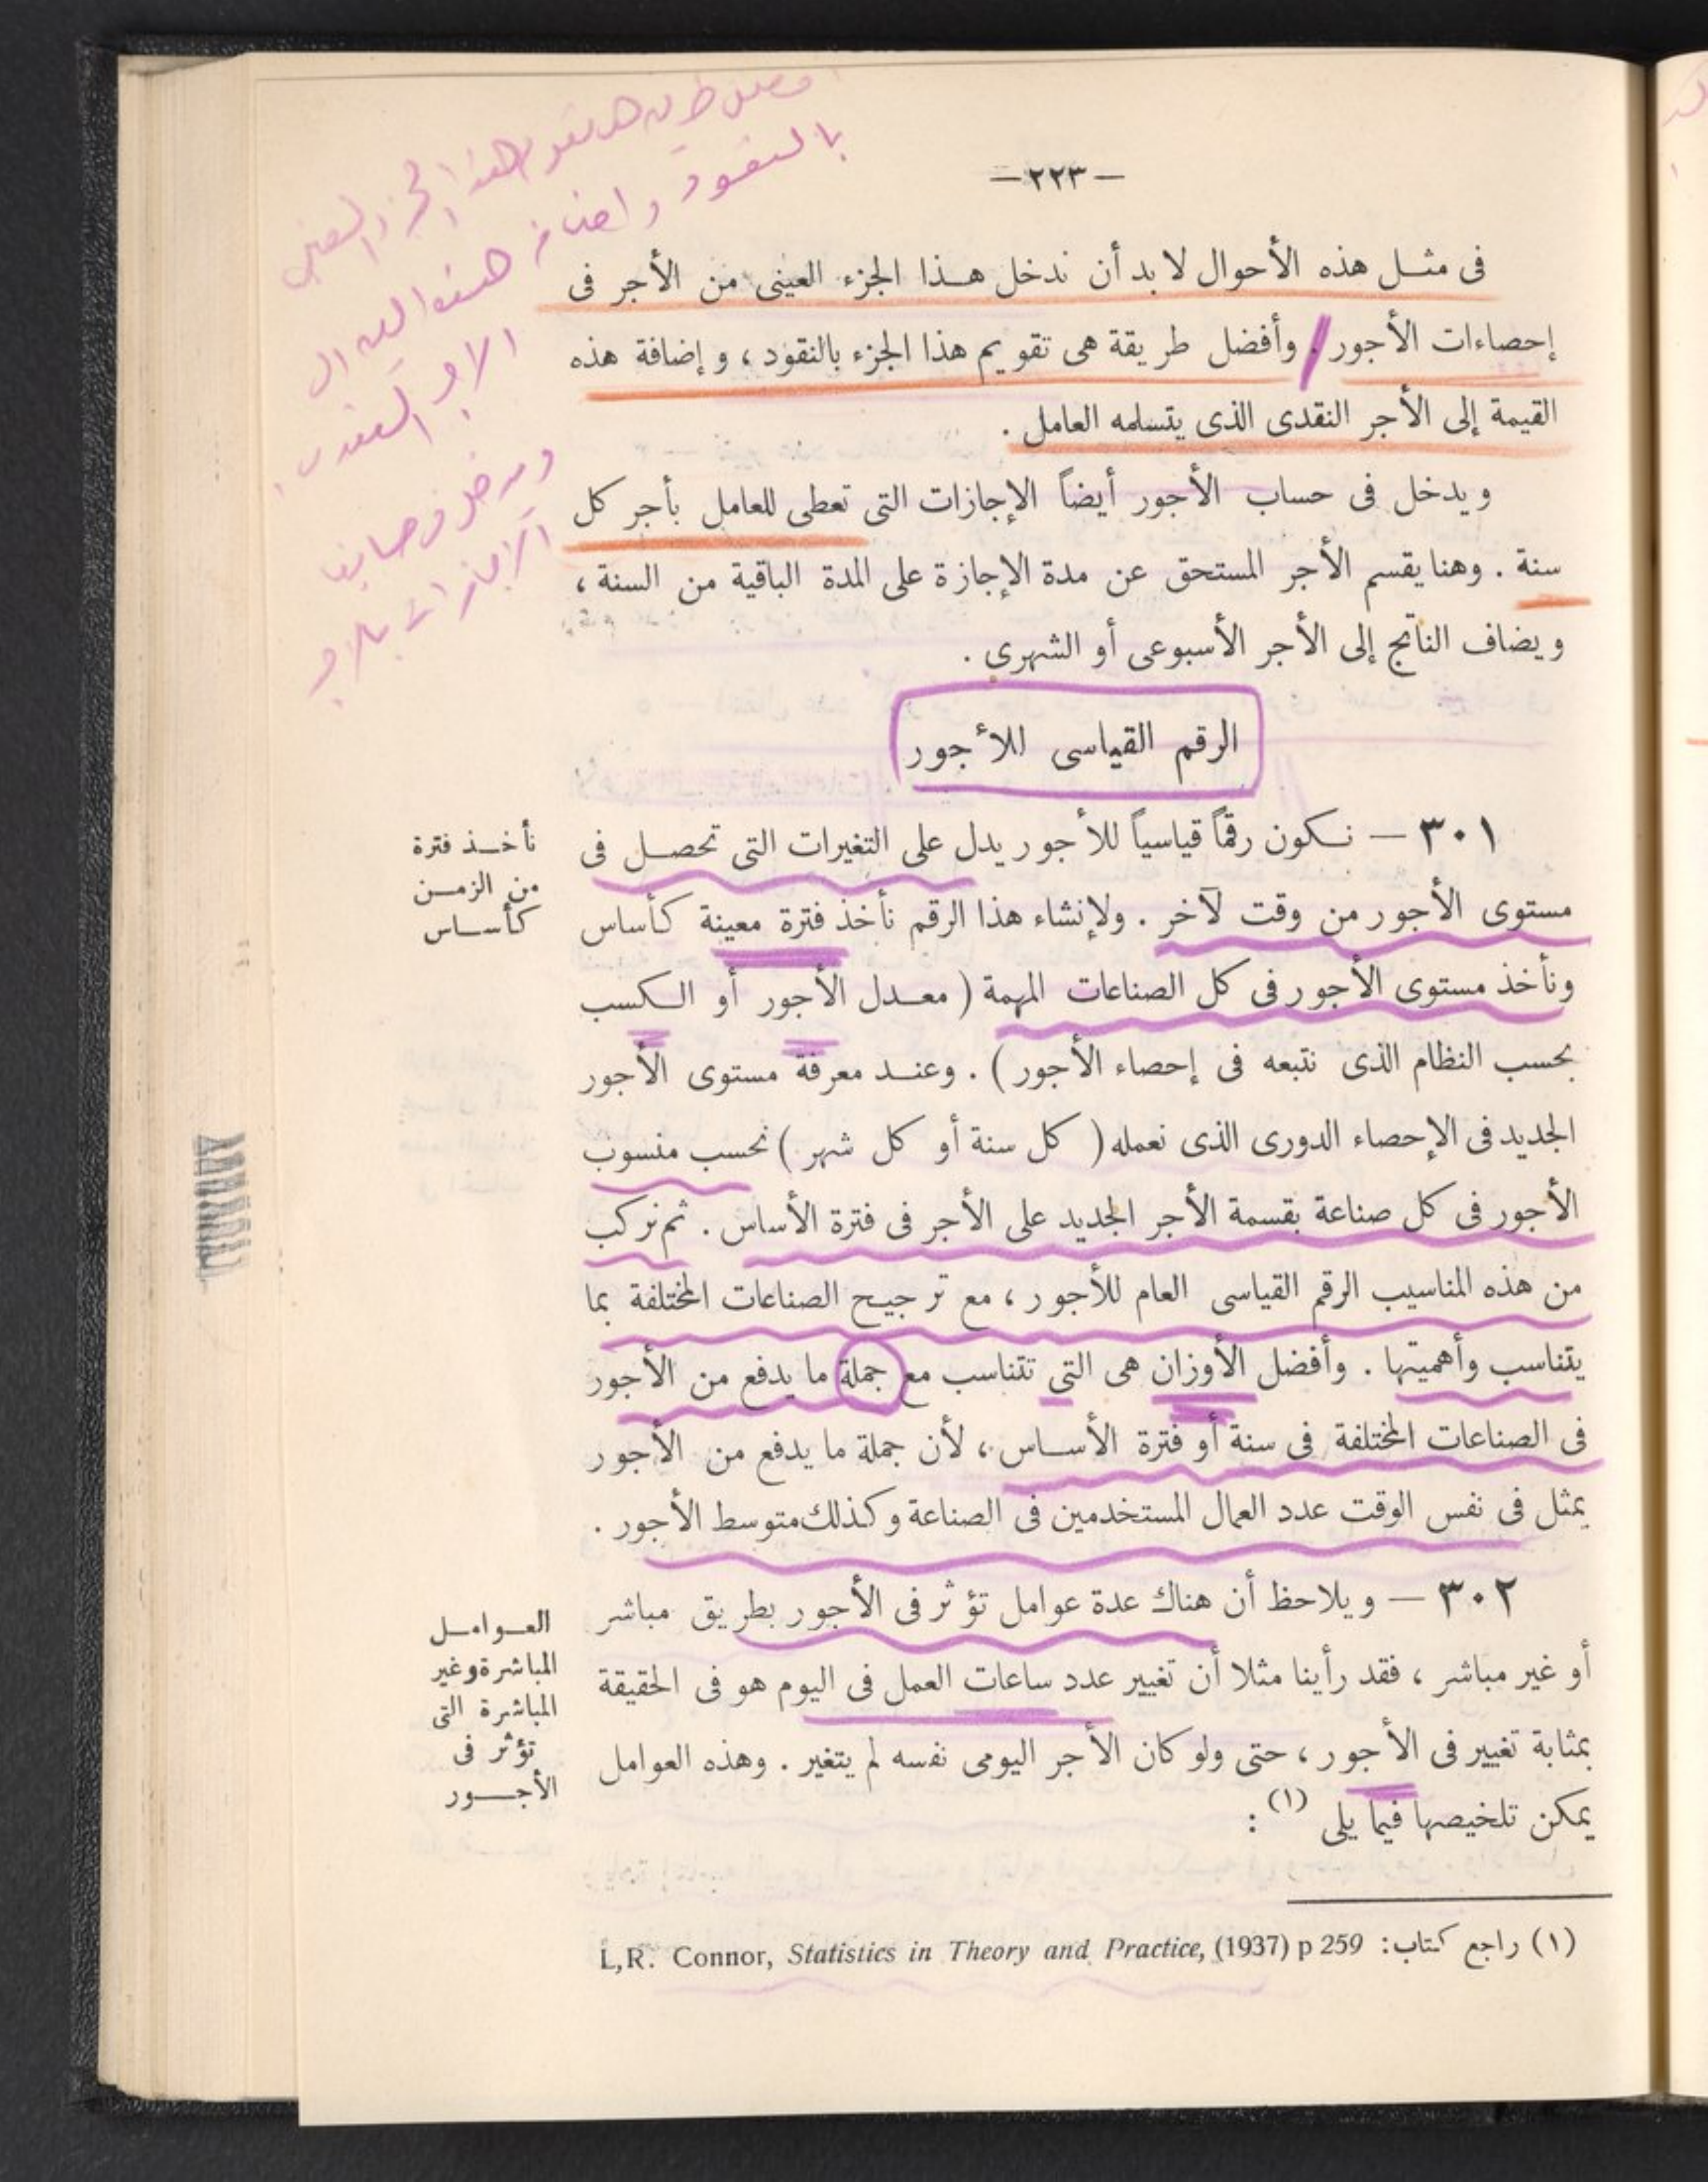 — ٢٢٣ —
فى مثل هذه الأحوال لا بد أن ندخل هذا الجزء العينى من الأجر فى
إحصاءات الأجور . وأفضل طريقة هى تقويم هذا الجزء بالنقود ، وإضافة هذه
القيمة إلى الأجر النقدى الذى يتسلمه العامل .
ويدخل فى حساب الأجور أيضاً الإجازات التى تعطى للعامل بأجر كل
سنة . وهنا يقسم الأجر المستحق عن مدة الإجازة على المدة الباقية من السنة ،
ويضاف الناتج إلى الأجر الأسبوعى أو الشهرى .
الرقم القياسى للأجور
٣٠١ — نكون رقماً قياسياً للأجور يدل على التغيرات التى تحصل فى
مستوى الأجور من وقت لآخر . ولإنشاء هذا الرقم نأخذ فترة معينة كأساس
ونأخذ مستوى الأجور فى كل الصناعات المهمة ( معدل الأجور أو الكسب
بحسب النظام الذى نتبعه فى إحصاء الأجور ) . وعند معرفة مستوى الأجور
الجديد فى الإحصاء الدورى الذى نعمله ( كل سنة أو كل شهر ) نحسب منسوب
الأجور فى كل صناعة بقسمة الأجر الجديد على الأجر فى فترة الأساس . ثم نركب
من هذه المناسيب الرقم القياسى العام للأجور ، مع ترجيح الصناعات المختلفة بما
يتناسب وأهميتها . وأفضل الأوزان هى التى تتناسب مع جملة ما يدفع من الأجور
فى الصناعات المختلفة فى سنة أو فترة الأساس ، لأن جملة ما يدفع من الأجور
يمثل فى نفس الوقت عدد العمال المستخدمين فى الصناعة وكذلك متوسط الأجور .
نأخذ فترة
من الزمن
كأساس
٣٠٢ — ويلاحظ أن هناك عدة عوامل تؤثر فى الأجور بطريق مباشر
أو غير مباشر ، فقد رأينا مثلا أن تغيير عدد ساعات العمل فى اليوم هو فى الحقيقة
بمثابة تغيير فى الأجور ، حتى ولو كان الأجر اليومى نفسه لم يتغير . وهذه العوامل
يمكن تلخيصها فيما يلى (١) :
العوامل
المباشرة وغير
المباشرة التى
تؤثر فى
الأجور
(١) راجع كتاب: L,R. Connor, Statistics in Theory and Practice, (1937) p 259
بالنقود واضافة
هذه القيمة الى
الاجر النقدى